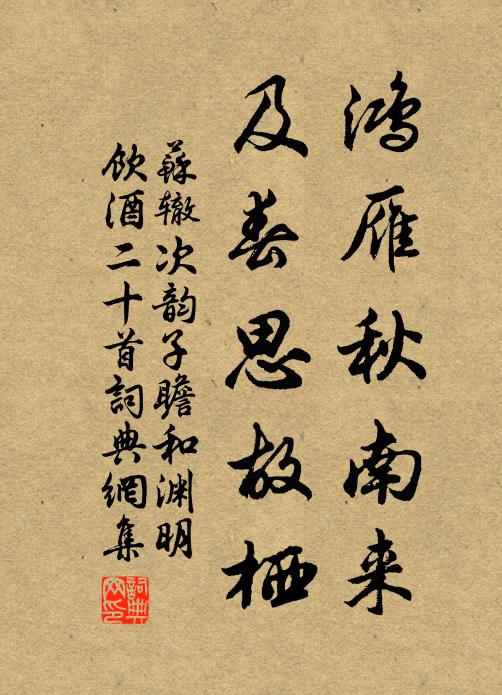 鸿雁秋南来
及春思故栖
蘇辙次韵子瞻和渊明
飲酒二十首詞典網集
詞典
网印